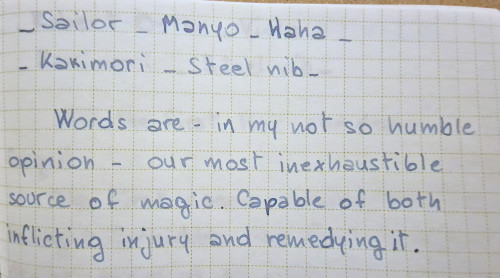 - Sailor - Manyo - Haha -
- Kakimori - Steel nib -
Words are - in my not so humble
opinion - our most inexhaustible
source of magic. Capable of both
inflicting injury and remedying it.